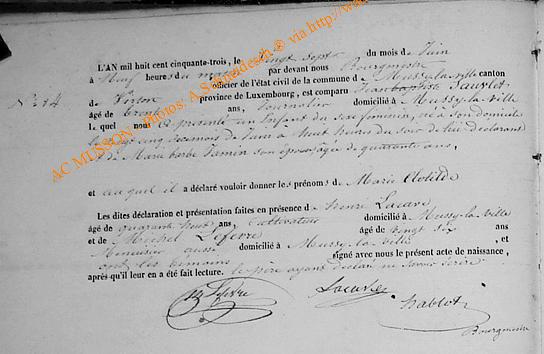 L'AN mil huit cent cinquante-trois, le vingt sept du mois de Juin
à neuf heures du matin par devant nous Bourgmestre
officier de l'état civil de la commune de Mussy-la-ville canton
N° 24
de Virton province de Luxembourg, est comparu Jean baptiste
âgé de ans, journalier domicilié à Mussy-la-ville
lequel nous a présenté un Enfant du sexe féminin, né à son domicile
le vingt cinq de Juin à neuf heures du soir de lui déclarant
et de Marie barbe Jamin son épouse, âgée de quarante ans,
et auquel il a déclaré vouloir donner les prénoms de Marie Clotilde
Les dites déclaration et présentation faites en présence de henri
âgé de quarante huit ans, Cultivateur domicilié à Mussy-la-ville
et de Michel Lefevre âgé de vingt six ans
Menuisier aussi domicilié à Mussy-la-ville , et
ont les témoins signé avec nous le présent acte de naissance,
après qu'il leur en a été fait lecture. le père ayant déclaré ne savoir écrire
Lefevre
Bourgmestre
AC MUSSON - Photos: A.Schneidesch © via http://ww